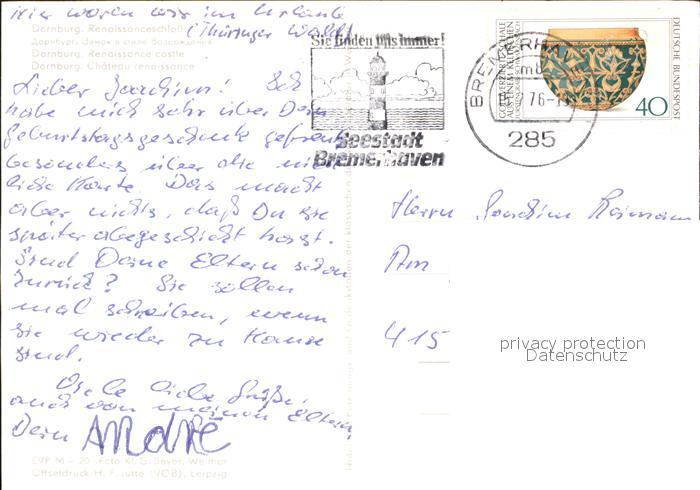 Hier waren wir im Urlaub
(Thüringer Wald)
Dornburg. Renaissanceschloß
Дорнбург. Замок в стиле Возрождения
Dornburg. Renaissance castle
Dornburg. Château renaissance
Lieber Joachim! Ich
habe mich sehr über Dein
Geburtstagsgeschenk gefreut
besonders über die
Karte. Das macht
aber nichts, daß Du sie
später abgeschickt hast.
Sind Deine Eltern schon
zurück? Sie sollen
mal schreiben, wenn
sie wieder zu Hause
sind.
Viele liebe Grüße
auch von meinen Eltern,
Dein André
EVP M – 20 Foto K. G. Beyer, Weimar
Offsetdruck H. F. Jütte (VOB), Leipzig
Sie finden uns immer!
Seestadt
Bremerhaven
BREMERH
76-1
285
GOLDVERZIERTE SCHALE
DEUTSCHE BUNDESPOST
40
Herrn Joachim Reimann
Am
415
privacy protection
Datenschutz